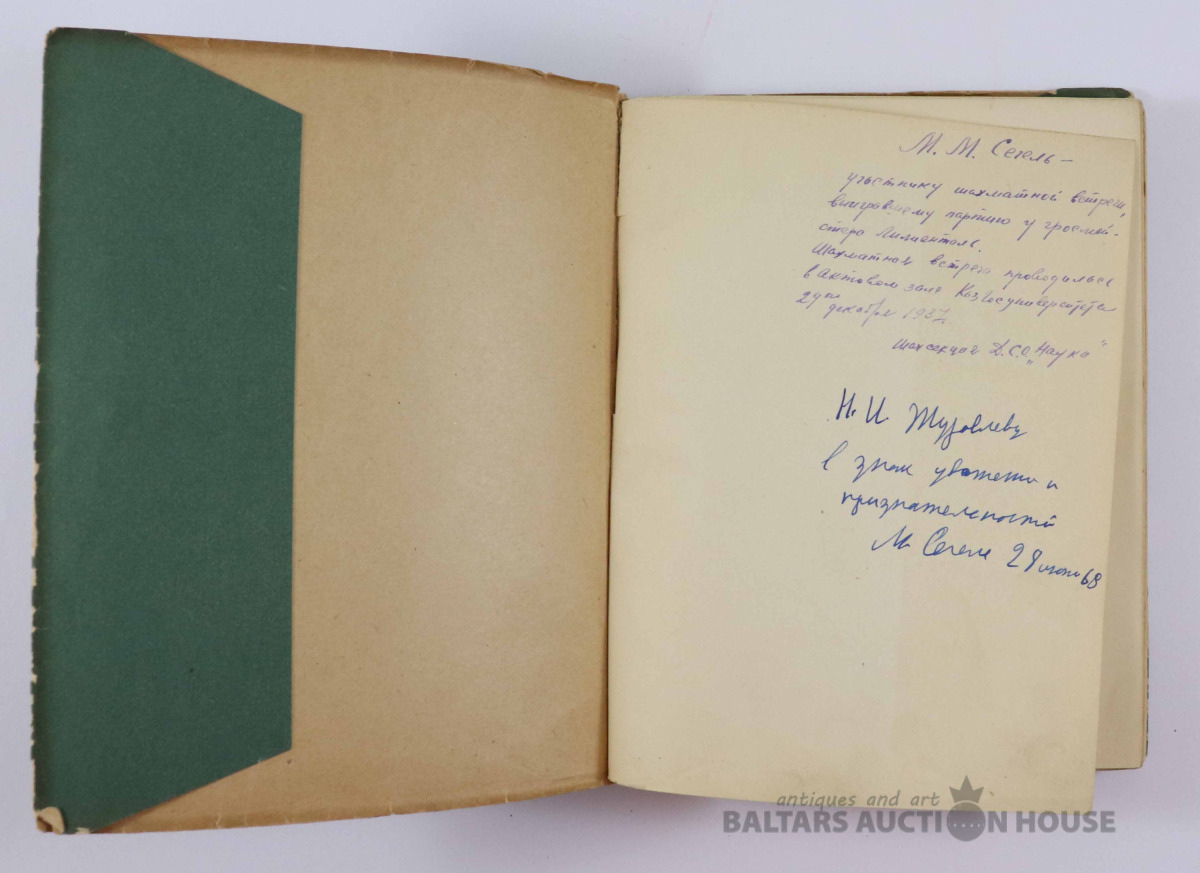 М. М. Сегель –
участнику шахматной встречи,
выигравшему партию у гроссмей-
стера Лилиенталь.
Шахматная встреча проводилась
в Актовом зале КазГосуниверситета
2 дня
декабря 1957
Шахсекция Д.С.О. „Наука"
Н. И. Журавлеву
в знак уважения и
признательности
М. Сегель 28 июня 68
antiques and art
BALTARS AUCTION HOUSE